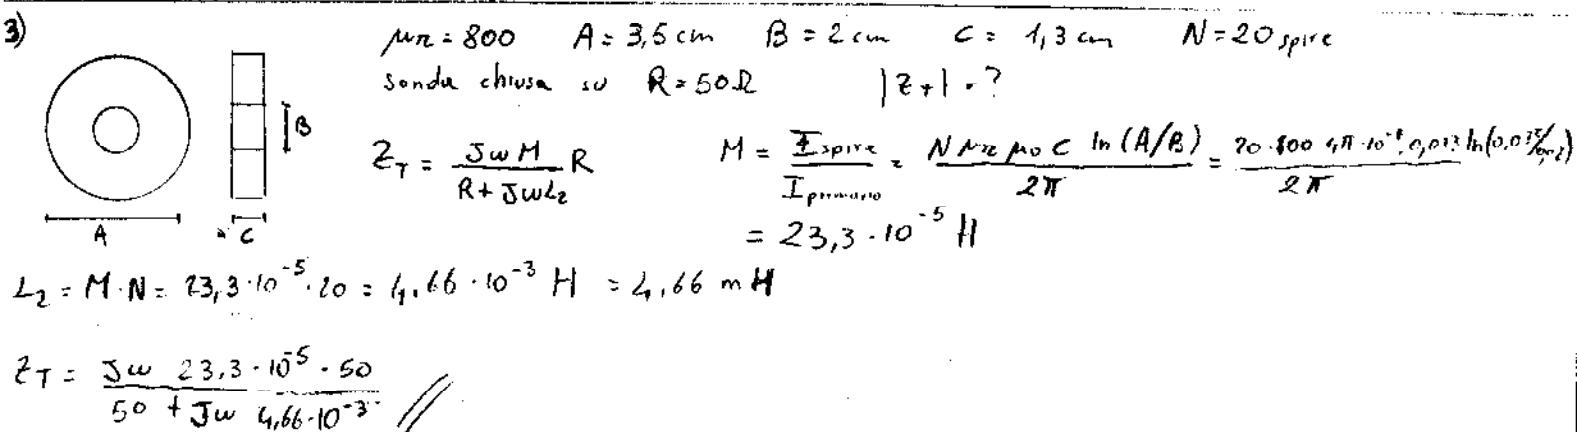 3)
μr = 800 A = 3,5 cm B = 2 cm C = 1,3 cm N = 20 spire
sonda chiusa su R = 50Ω |ZT| = ?
B
ZT = JωM / (R + JωL2) R M = Φspire / Iprimario = N μr μ0 C ln(A/B) / 2π = 20·800 4π·10⁻⁷ 0,013 ln(0,035/0,02) / 2π
= 23,3·10⁻⁵ H
A C
L2 = M·N = 23,3·10⁻⁵·20 = 4,66·10⁻³ H = 4,66 mH
ZT = Jω 23,3·10⁻⁵·50 / (50 + Jω 4,66·10⁻³)